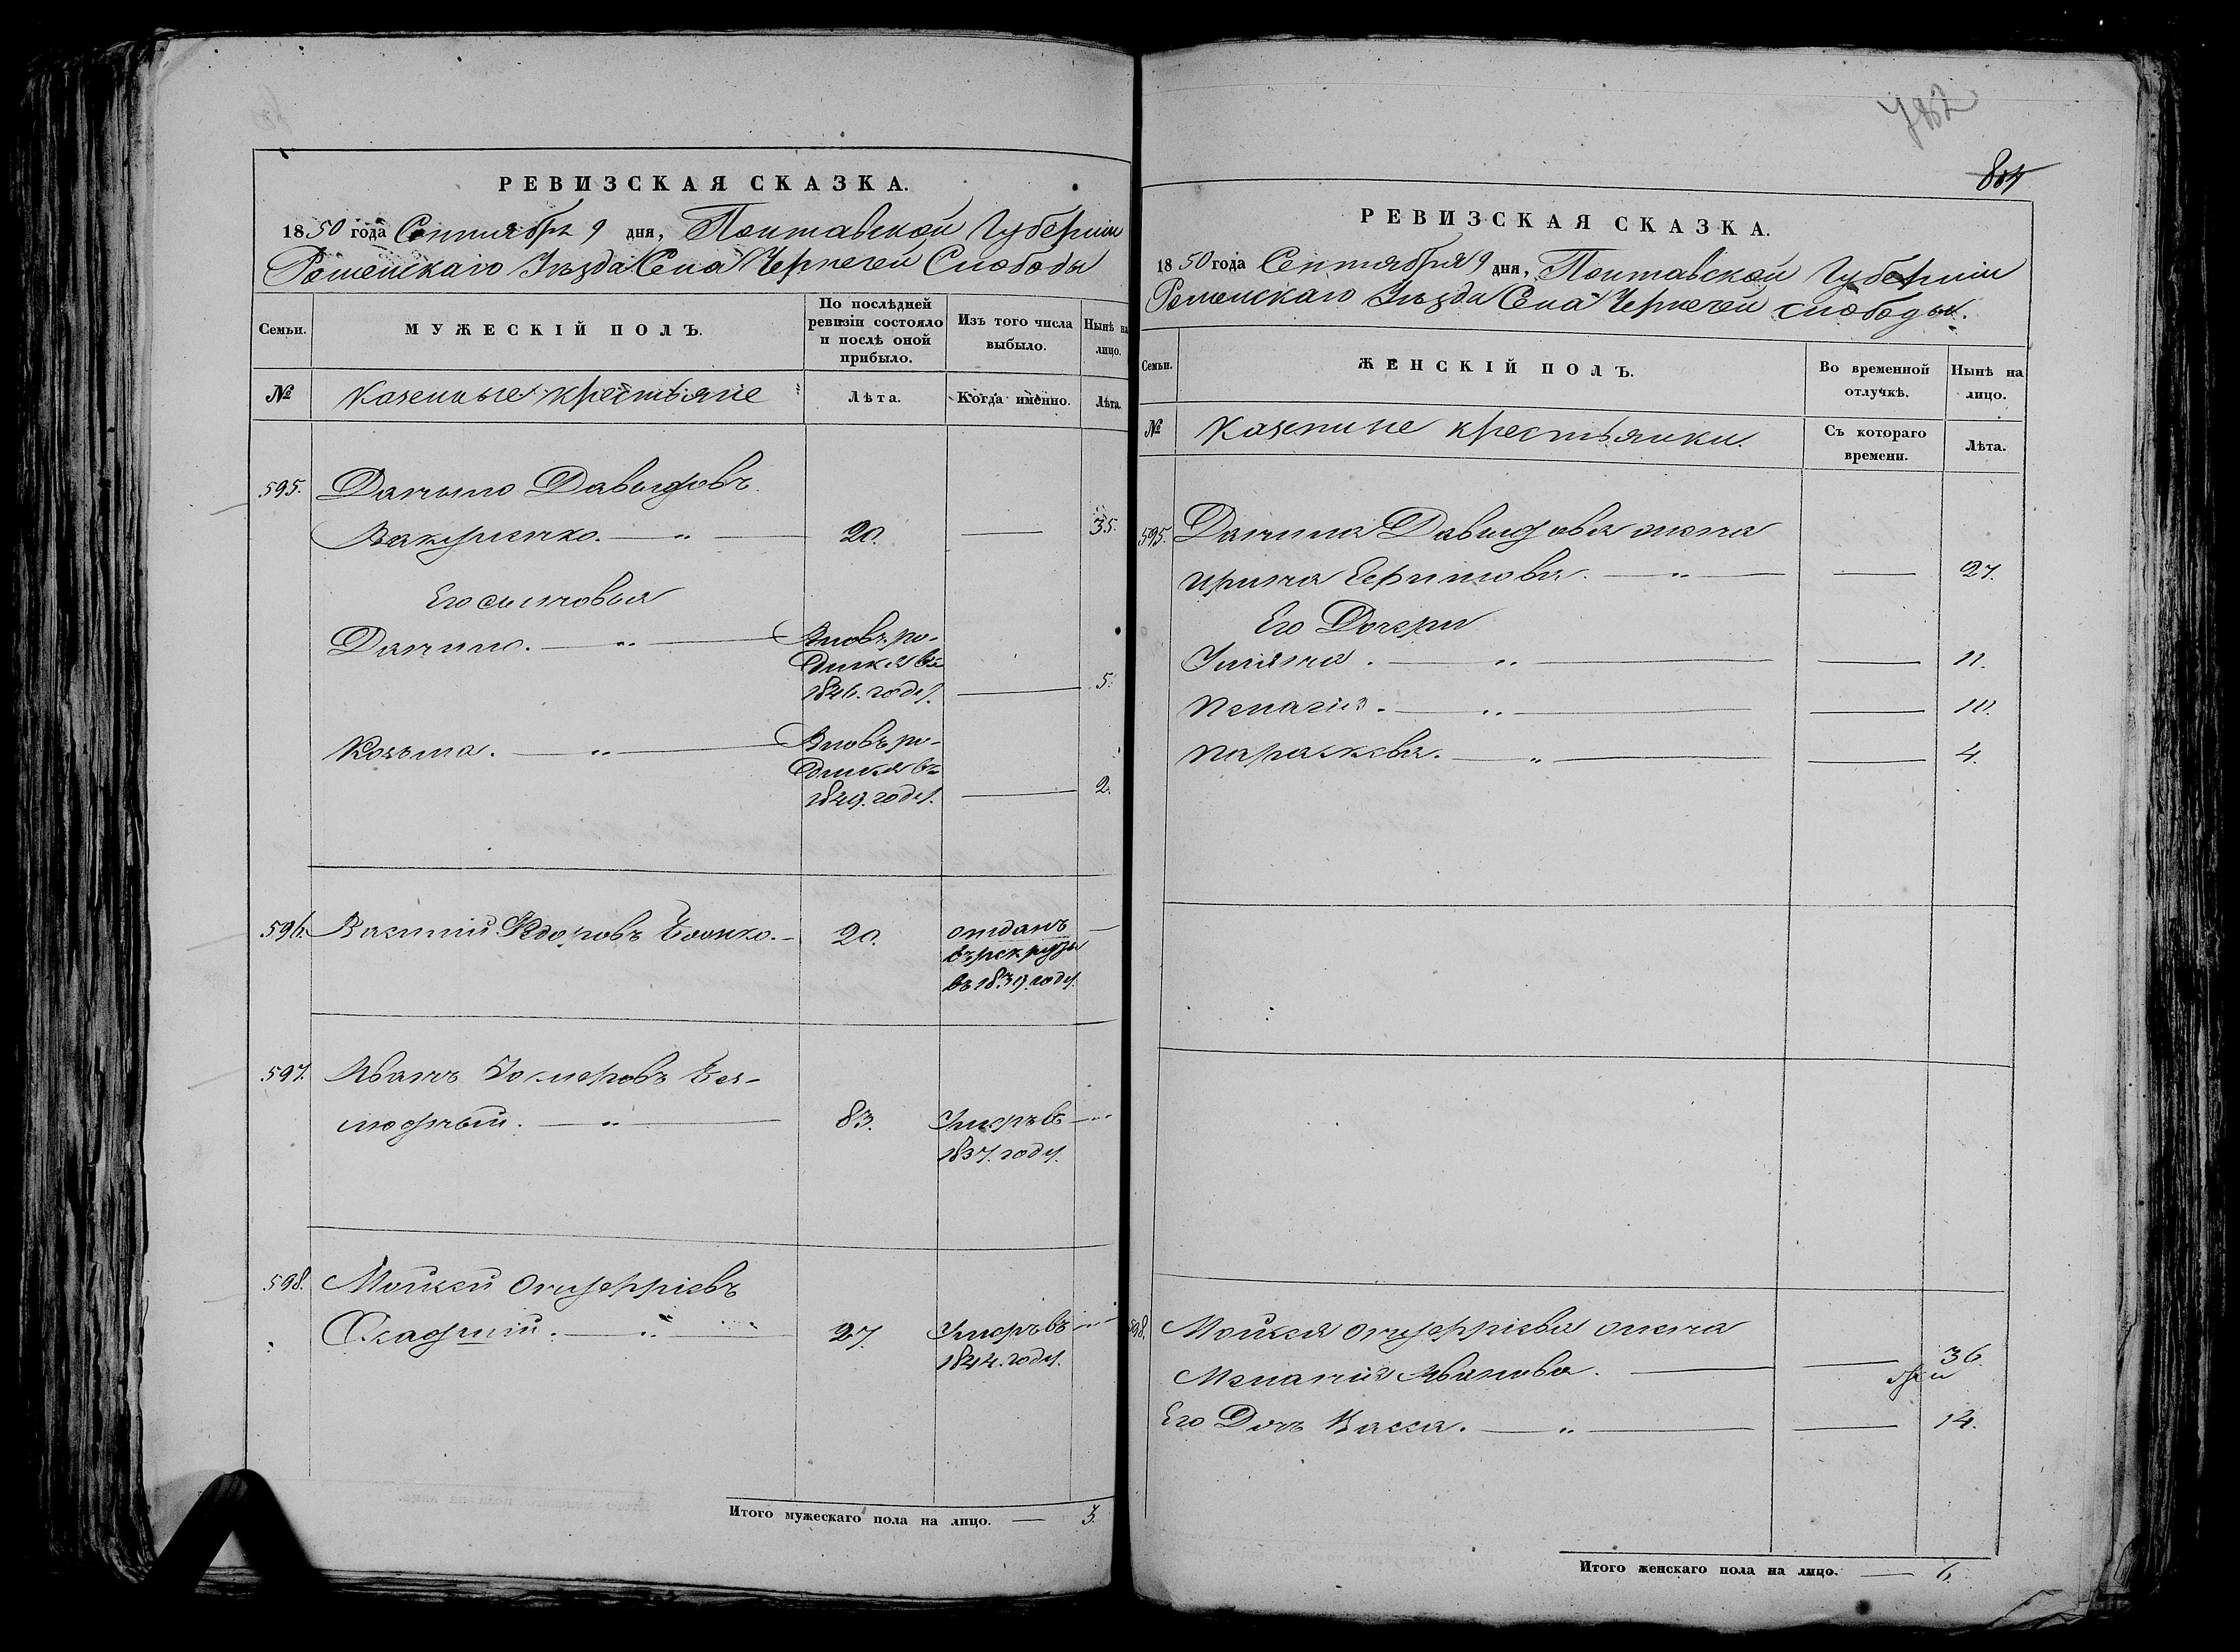 РЕВИЗСКАЯ СКАЗКА.
1850 года Сентября 9 дня, Полтавской Губерніи
Роменскаго Уѣзда Села Чернечей Слободы
Семьи.
МУЖЕСКІЙ ПОЛЪ.
По послѣдней ревизіи состояло и послѣ оной прибыло.
Изъ того числа выбыло.
Нынѣ на лицо.
№ Казенные крестьяне Лѣта. Когда именно. Лѣта.
595. Данило Давыдовъ
20. — 35.
Его сыновья
Данило. — „ — Вновь ро-
дился въ
1846. году. — 5.
Козьма. — „ — Вновь ро-
дился въ
1849. году. — 2.
596. Василий Федоровъ 20. отданъ —
въ рекруты
въ 1839. году.
597. Иванъ Без-
людный. — „ — 83. Умеръ въ —
1837. году.
598. Мойсей Онуфріевъ
27. Умеръ въ —
1844. году.
Итого мужескаго пола на лицо. — 3.
804
РЕВИЗСКАЯ СКАЗКА.
1850 года Сентября 9 дня, Полтавской Губерніи
Роменскаго Уѣзда Села Чернечей слободы.
Семьи.
ЖЕНСКІЙ ПОЛЪ.
Во временной отлучкѣ.
Нынѣ на лицо.
№ Казенные крестьянки. Съ котораго времени. Лѣта.
595. Данила Давыдова жена
Ирина Ефимова. — „ — — 27.
Его Дочери
Ульяна. — „ — — 11.
Пелагія. — „ — — 10.
Параскева. — „ — — 4.
598. Мойсея Онуфріева жена
Меланія Иванова. — — 36.
Его Дочь Васса. — „ — — 14.
Итого женскаго пола на лицо. — 6.